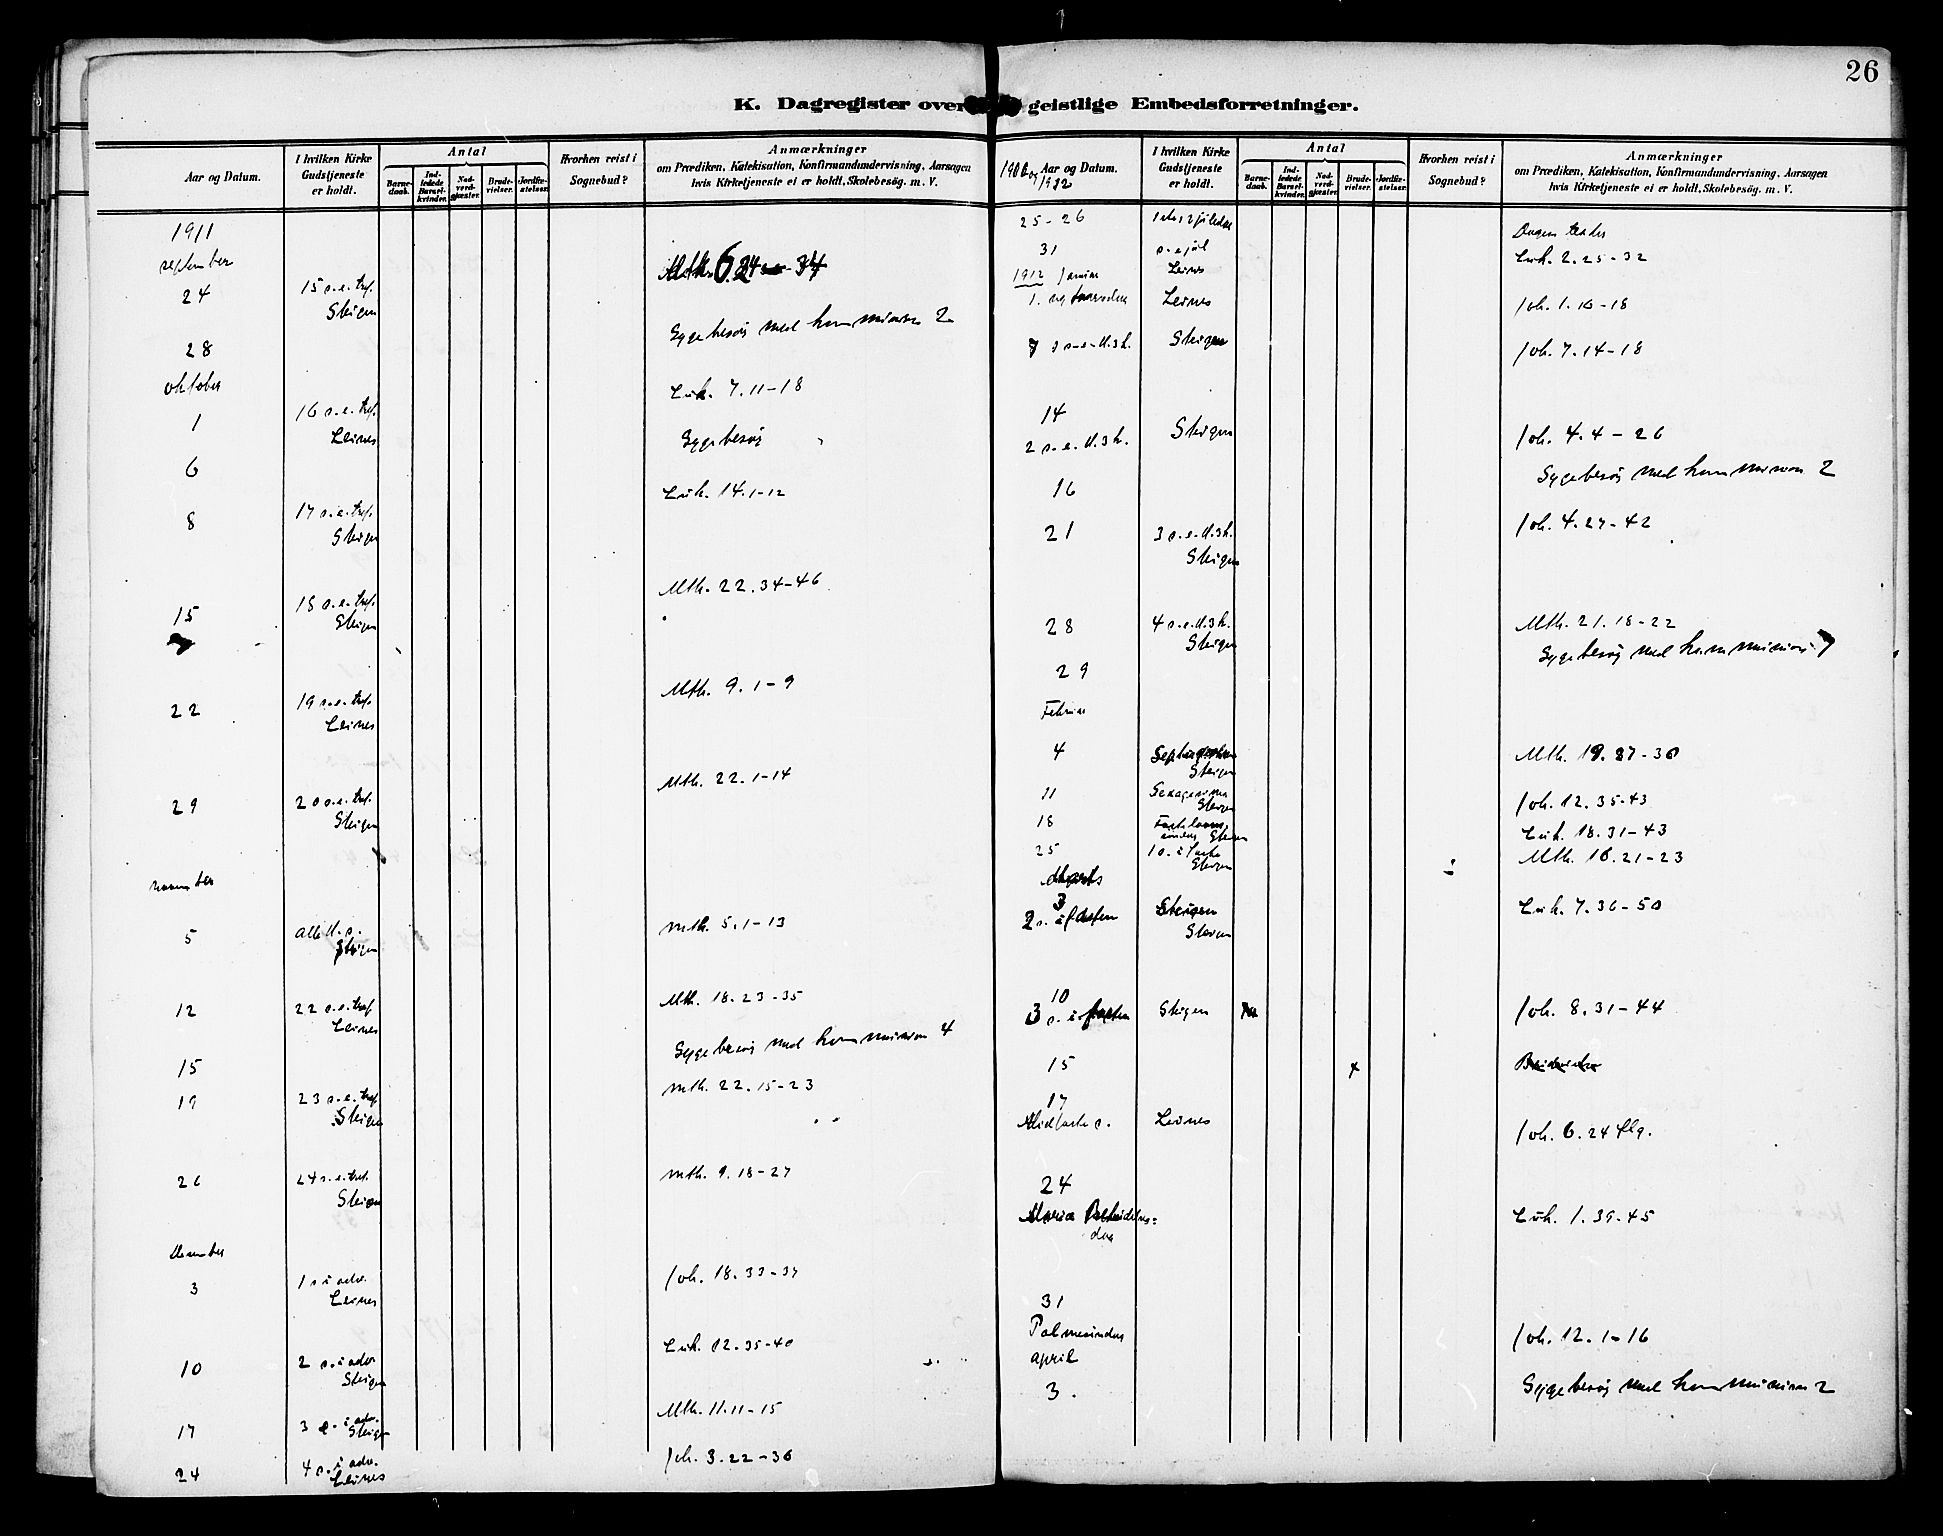 26
K. Dagregister over geistlige Embedsforretninger.
Aar og Datum.
I hvilken Kirke Gudstjeneste er holdt.
Antal
Barne-daab.
Ind-ledede Barsel-kvinder.
Nad-verd-gjæster.
Brude-vielser.
Jordfæ-stelser.
Hvorhen reist i Sognebud?
Anmærkninger
om Prædiken, Katekisation, Konfirmandundervisning, Aarsagen
hvis Kirketjeneste ei er holdt, Skolebesøg. m. V.
1911
september
24 15 s.e.tref. Steigen Mth. 6.24-34
28 Sygebesøg med kommunion 2
oktober
1 16 s.e.tref. Leines Luk. 7.11-18
6 Sygebesøg
8 17 s.e.tref. Steigen Luk. 14.1-12
15 18 s.e.tref. Steigen Mth. 22.34-46
22 19 s.e.tref. Leines Mth. 9.1-9
29 20 s.e.tref. Steigen Mth. 22.1-14
november
5 alle h.s. Steigen Mth. 5.1-13
12 22 s.e.tref. Leines Mth. 18.23-35
15 Sygebesøg med kommunion 4
19 23 s.e.tref. Steigen Mth. 22.15-23
26 24 s.e.tref. Steigen Mth. 9.18-27
December
3 1 s. i adv. Leines Joh. 18.33-37
10 2 s. i adv. Steigen Luk. 12.35-40
17 3 s. i adv. Steigen Mth. 11.11-15
24 4 s. i adv. Leines Joh. 3.22-36
Aar og Datum.
1912
I hvilken Kirke Gudstjeneste er holdt.
Antal
Barne-daab.
Ind-ledede Barsel-kvinder.
Nad-verd-gjæster.
Brude-vielser.
Jordfæ-stelser.
Hvorhen reist i Sognebud?
Anmærkninger
om Prædiken, Katekisation, Konfirmandundervisning, Aarsagen
hvis Kirketjeneste ei er holdt, Skolebesøg. m. V.
25-26 1 2 juledag Dagens
31 s.e.jul Leines Luk. 2.25-32
1912 Januar
1. Leines Joh. 1.16-18
7 1 s.e.H.3k. Steigen Joh. 7.14-18
14
2 s.e.H.3k. Steigen Joh. 4.4-26
16 Sygebesøg med kommunion 2
21 3 s.e.H.3k. Steigen Joh. 4.27-42
28 4 s.e.H.3k. Steigen Mth. 21.18-22
29 Sygebesøg med kommunion 7
Februar
4 Steigen Mth. 19.27-30
11 Sexagesima Steigen Joh. 12.35-43
18 Fastelavns søndag Steigen Luk. 18.31-43
25 1 s. i faste Steigen Mth. 16.21-23
Marts
3
2 s. i fasten Steigen Steigen Luk. 7.36-50
10
3 s. i fasten Steigen Joh. 8.31-44
15
17
Midfaste s. Leines Joh. 6.24 flg.
24
Maria Luk. 1.39-45
31
Palmesøndag Joh. 12.1-16
april
3. Sygebesøg med kommunion 2